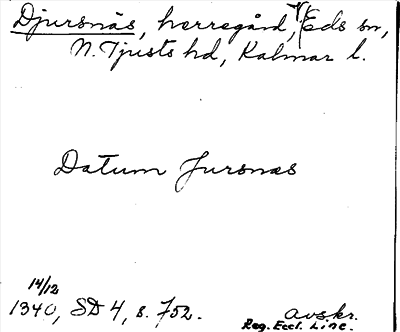 Djursnäs, herregård, V Eds sn,
N. Tjusts hd, Kalmar l.
Datum Jursnæs
14/12
1340, SD 4, s. 752.
avskr.
Reg. Eccl. Linc.